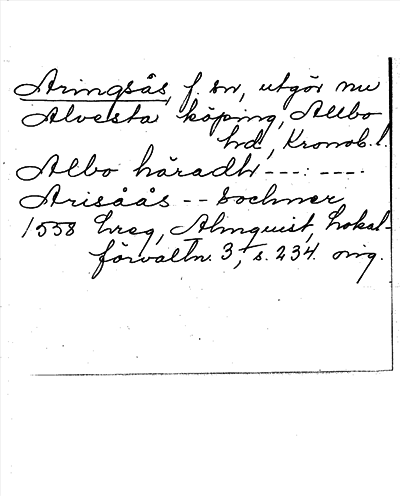 Aringsås, f. sn, utgör nu
Alvesta köping, Allbo
hd, Kronob. l.
Albo häradh ---: ----
Arisåås -- Sochner,
1558 hreg, Almquist, Lokal-
förvaltn. 3, s. 234. orig.